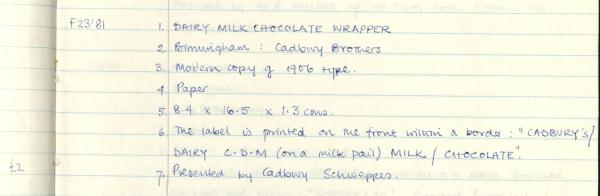 F23'81 1. DAIRY MILK CHOCOLATE WRAPPER
2. Birmingham : Cadbury Brothers
3. Modern copy of 1906 type.
4. Paper
5. 8.4 x 16.5 x 1.3 cms.
6. The label is printed on the front within a border : "CADBURY's/
DAIRY C.D.M (on a milk pail) MILK / CHOCOLATE".
£2 7. Presented by Cadbury Schweppes.